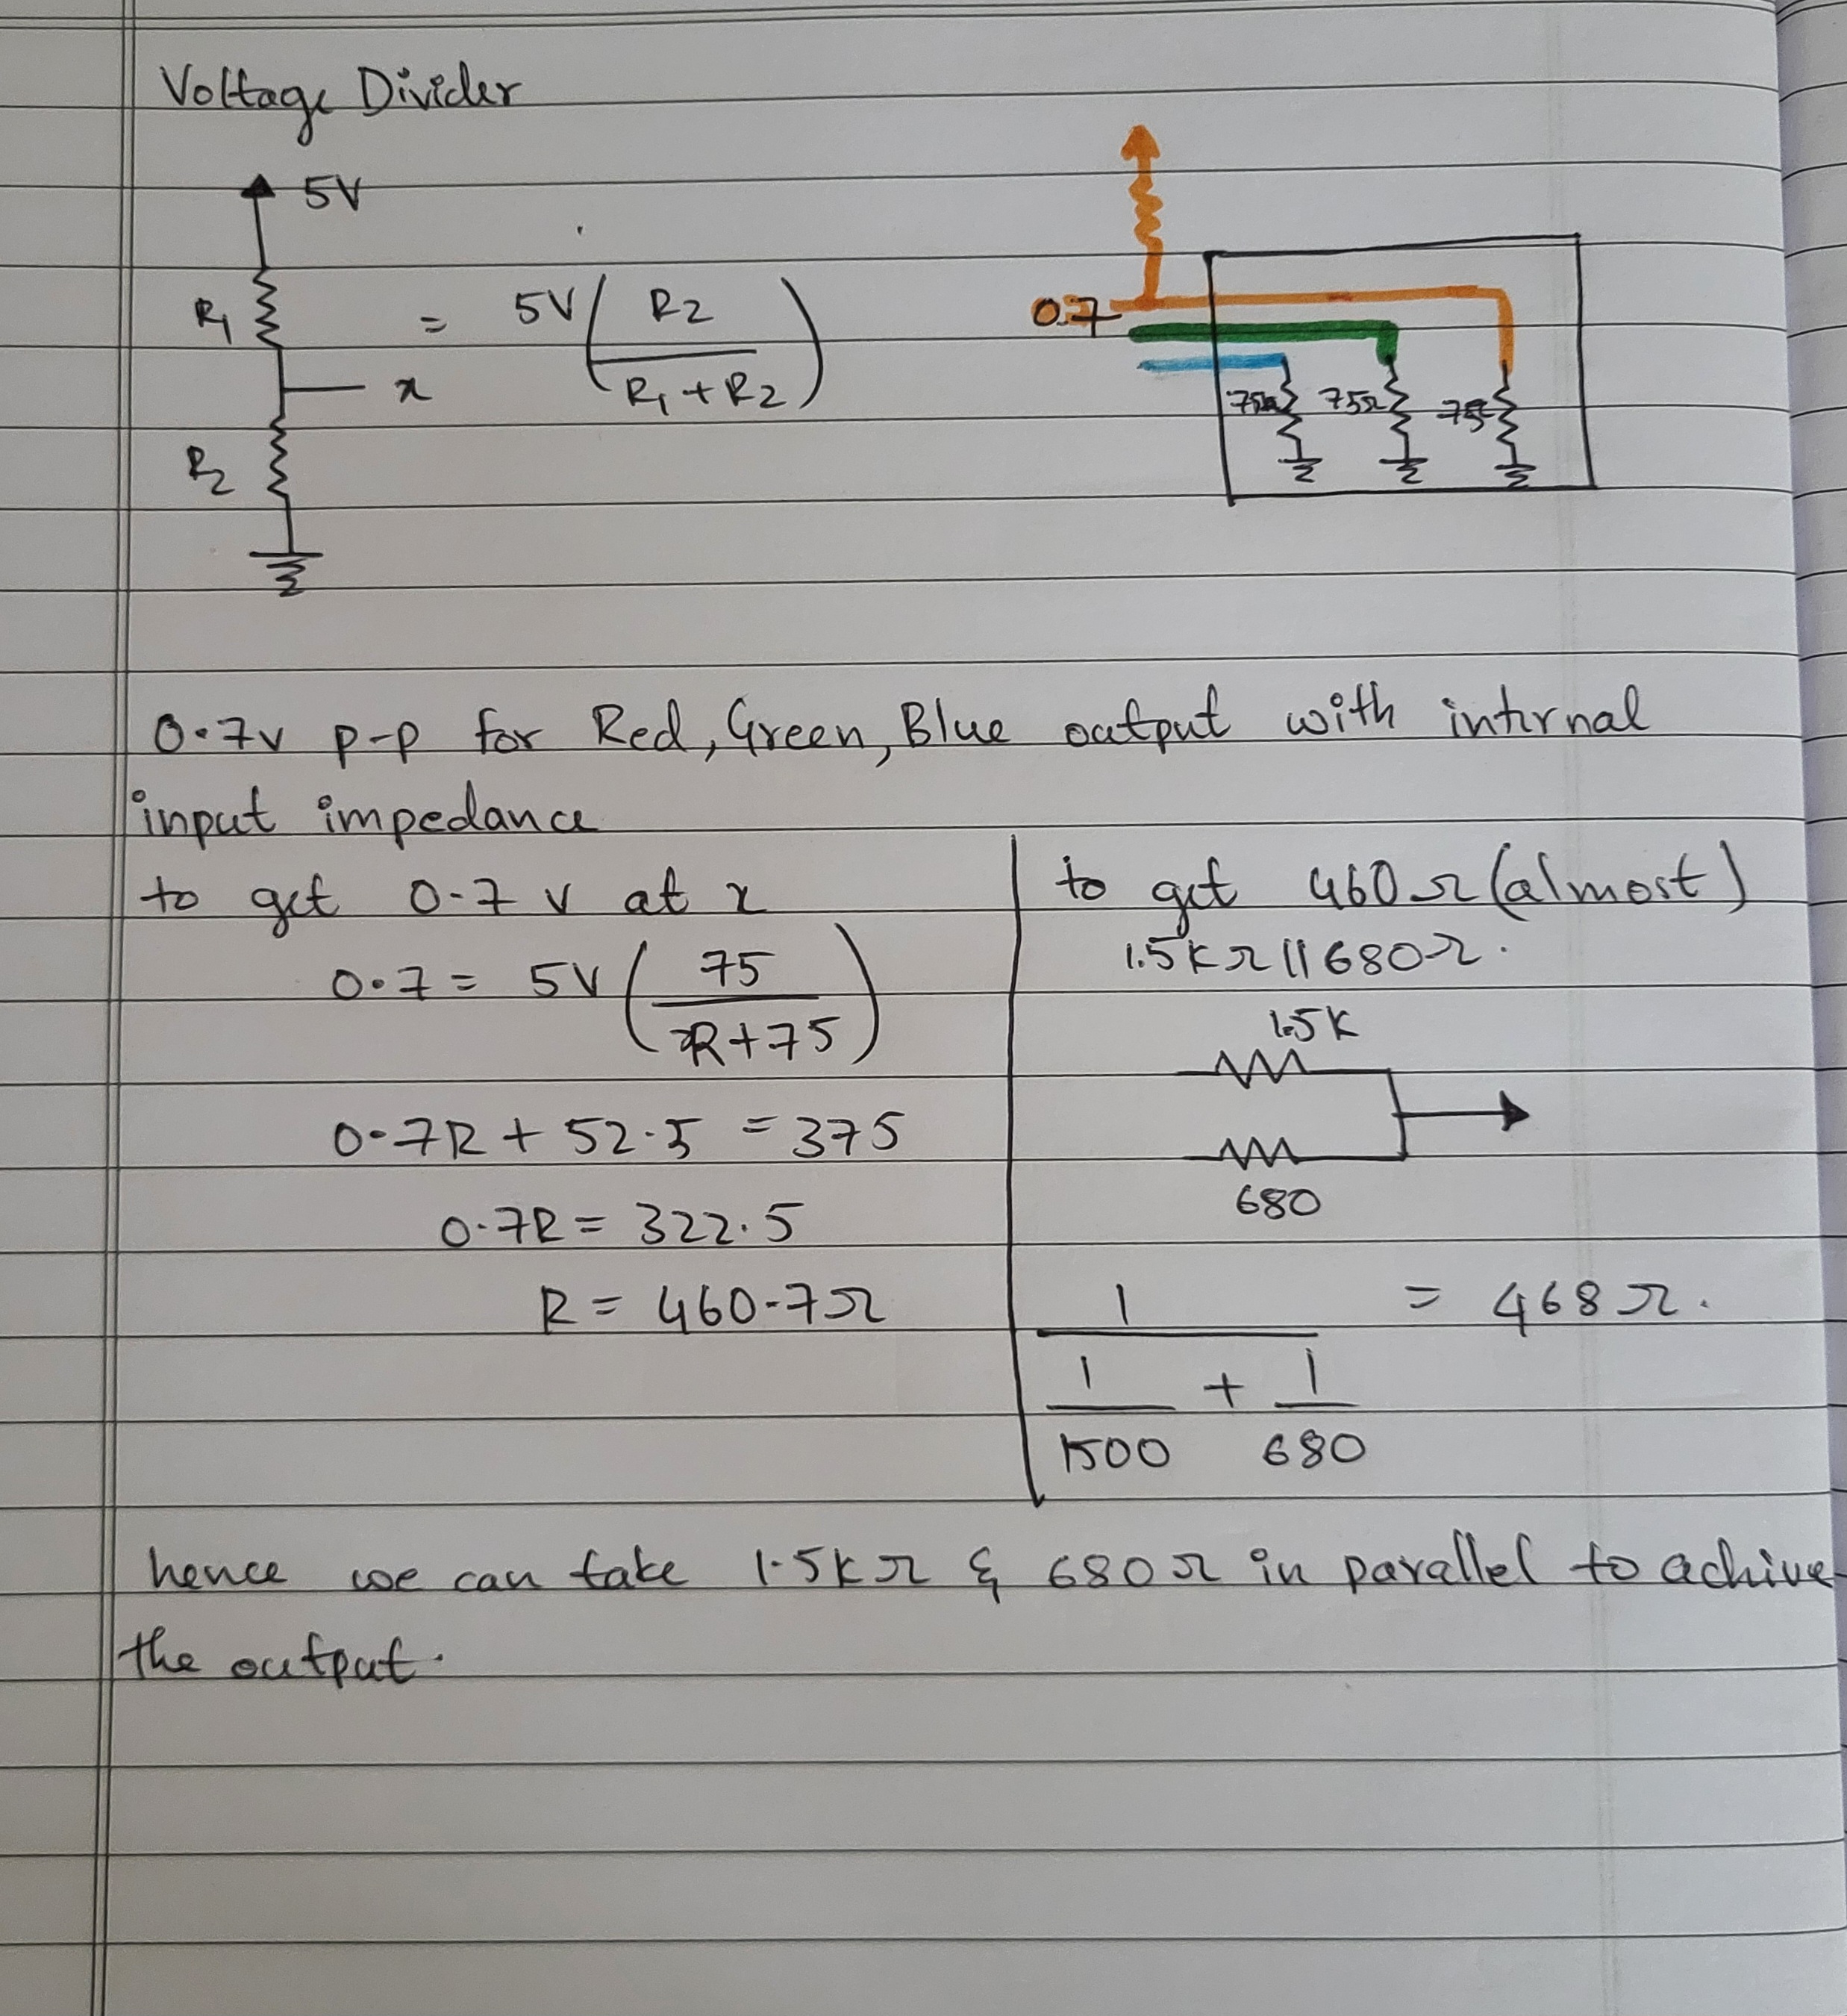 Voltage Divider
5V
R1
= 5V ( R2 / R1 + R2 )
x
R2
0.7
75Ω 75Ω 75
0.7v p-p for Red, Green, Blue output with internal
input impedance
to get 0.7 v at x
0.7 = 5V ( 75 / R+75 )
0.7R + 52.5 = 375
0.7R = 322.5
R = 460.7Ω
to get 460Ω (almost)
1.5KΩ || 680Ω.
1.5K
680
1 / ( 1/1500 + 1/680 ) = 468Ω.
hence we can take 1.5KΩ & 680Ω in parallel to achive
the output.